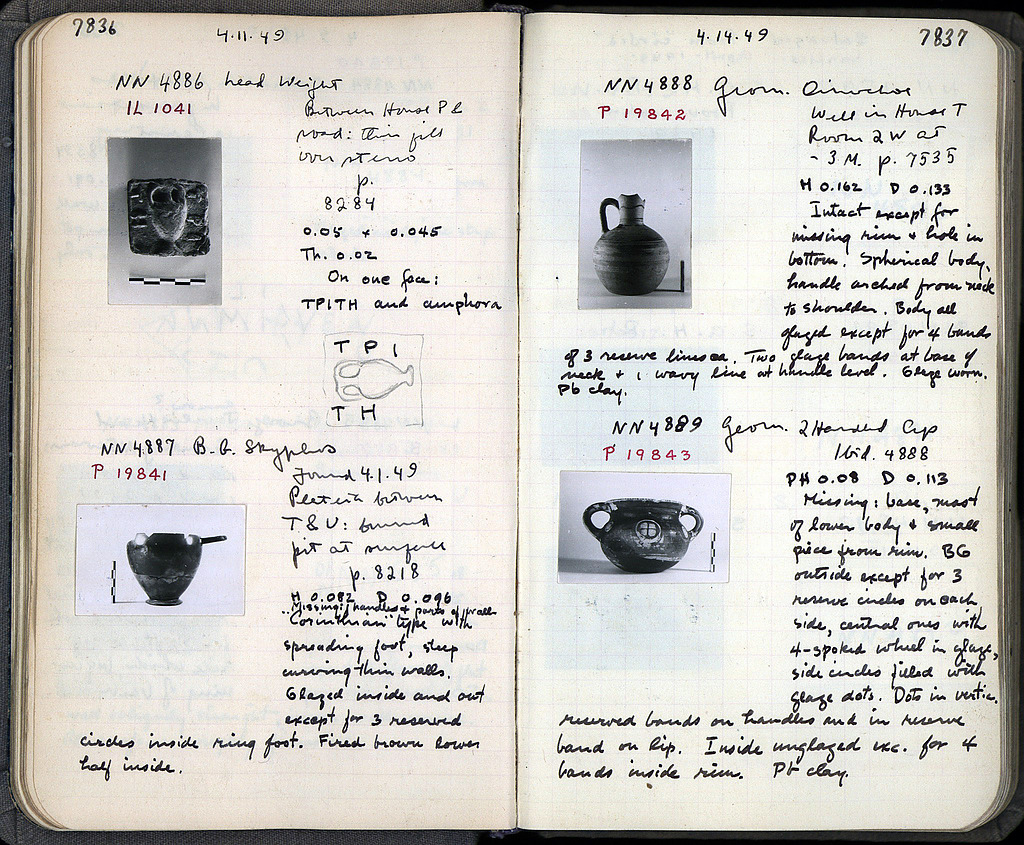 7836
4.11.49
NN 4886 Lead Weight
IL 1041
Between House P &
road: thin fill
over stereo
p.
8284
0.05 x 0.045
Th. 0.02
On one face:
TPITH and amphora
TPI
TH
NN 4887 B.G. Skyphos
P 19841
Found 4.1.49
Plateia between
T & U: burned
pit at surface
p. 8218
H 0.082 D 0.096
Missing: handles & parts of wall
"Corinthian" type with
spreading foot, steep
curving thin walls.
Glazed inside and out
except for 3 reserved
circles inside ring foot. Fired brown lower
half inside.
4.14.49
7837
NN 4888 Geom. Oinochoe
P 19842
Well in House T
Room 2 W at
- 3 M. p. 7535
H 0.162 D 0.133
Intact except for
missing rim & hole in
bottom. Spherical body,
handle arched from neck
to shoulder. Body all
glazed except for 4 bands
of 3 reserve lines ea. Two glaze bands at base of
neck & 1 wavy line at handle level. Glaze worn.
Pb clay.
NN 4889 Geom. 2 Handled Cup
P 19843
Ibid. 4888
PH 0.08 D 0.113
Missing: base, most
of lower body & small
piece from rim. BG
outside except for 3
reserve circles on each
side, central ones with
4-spoked wheel in glaze,
side circles filled with
glaze dots. Dots in vertic.
reserved bands on handles and in reserve
band on lip. Inside unglazed exc. for 4
bands inside rim. Pb clay.